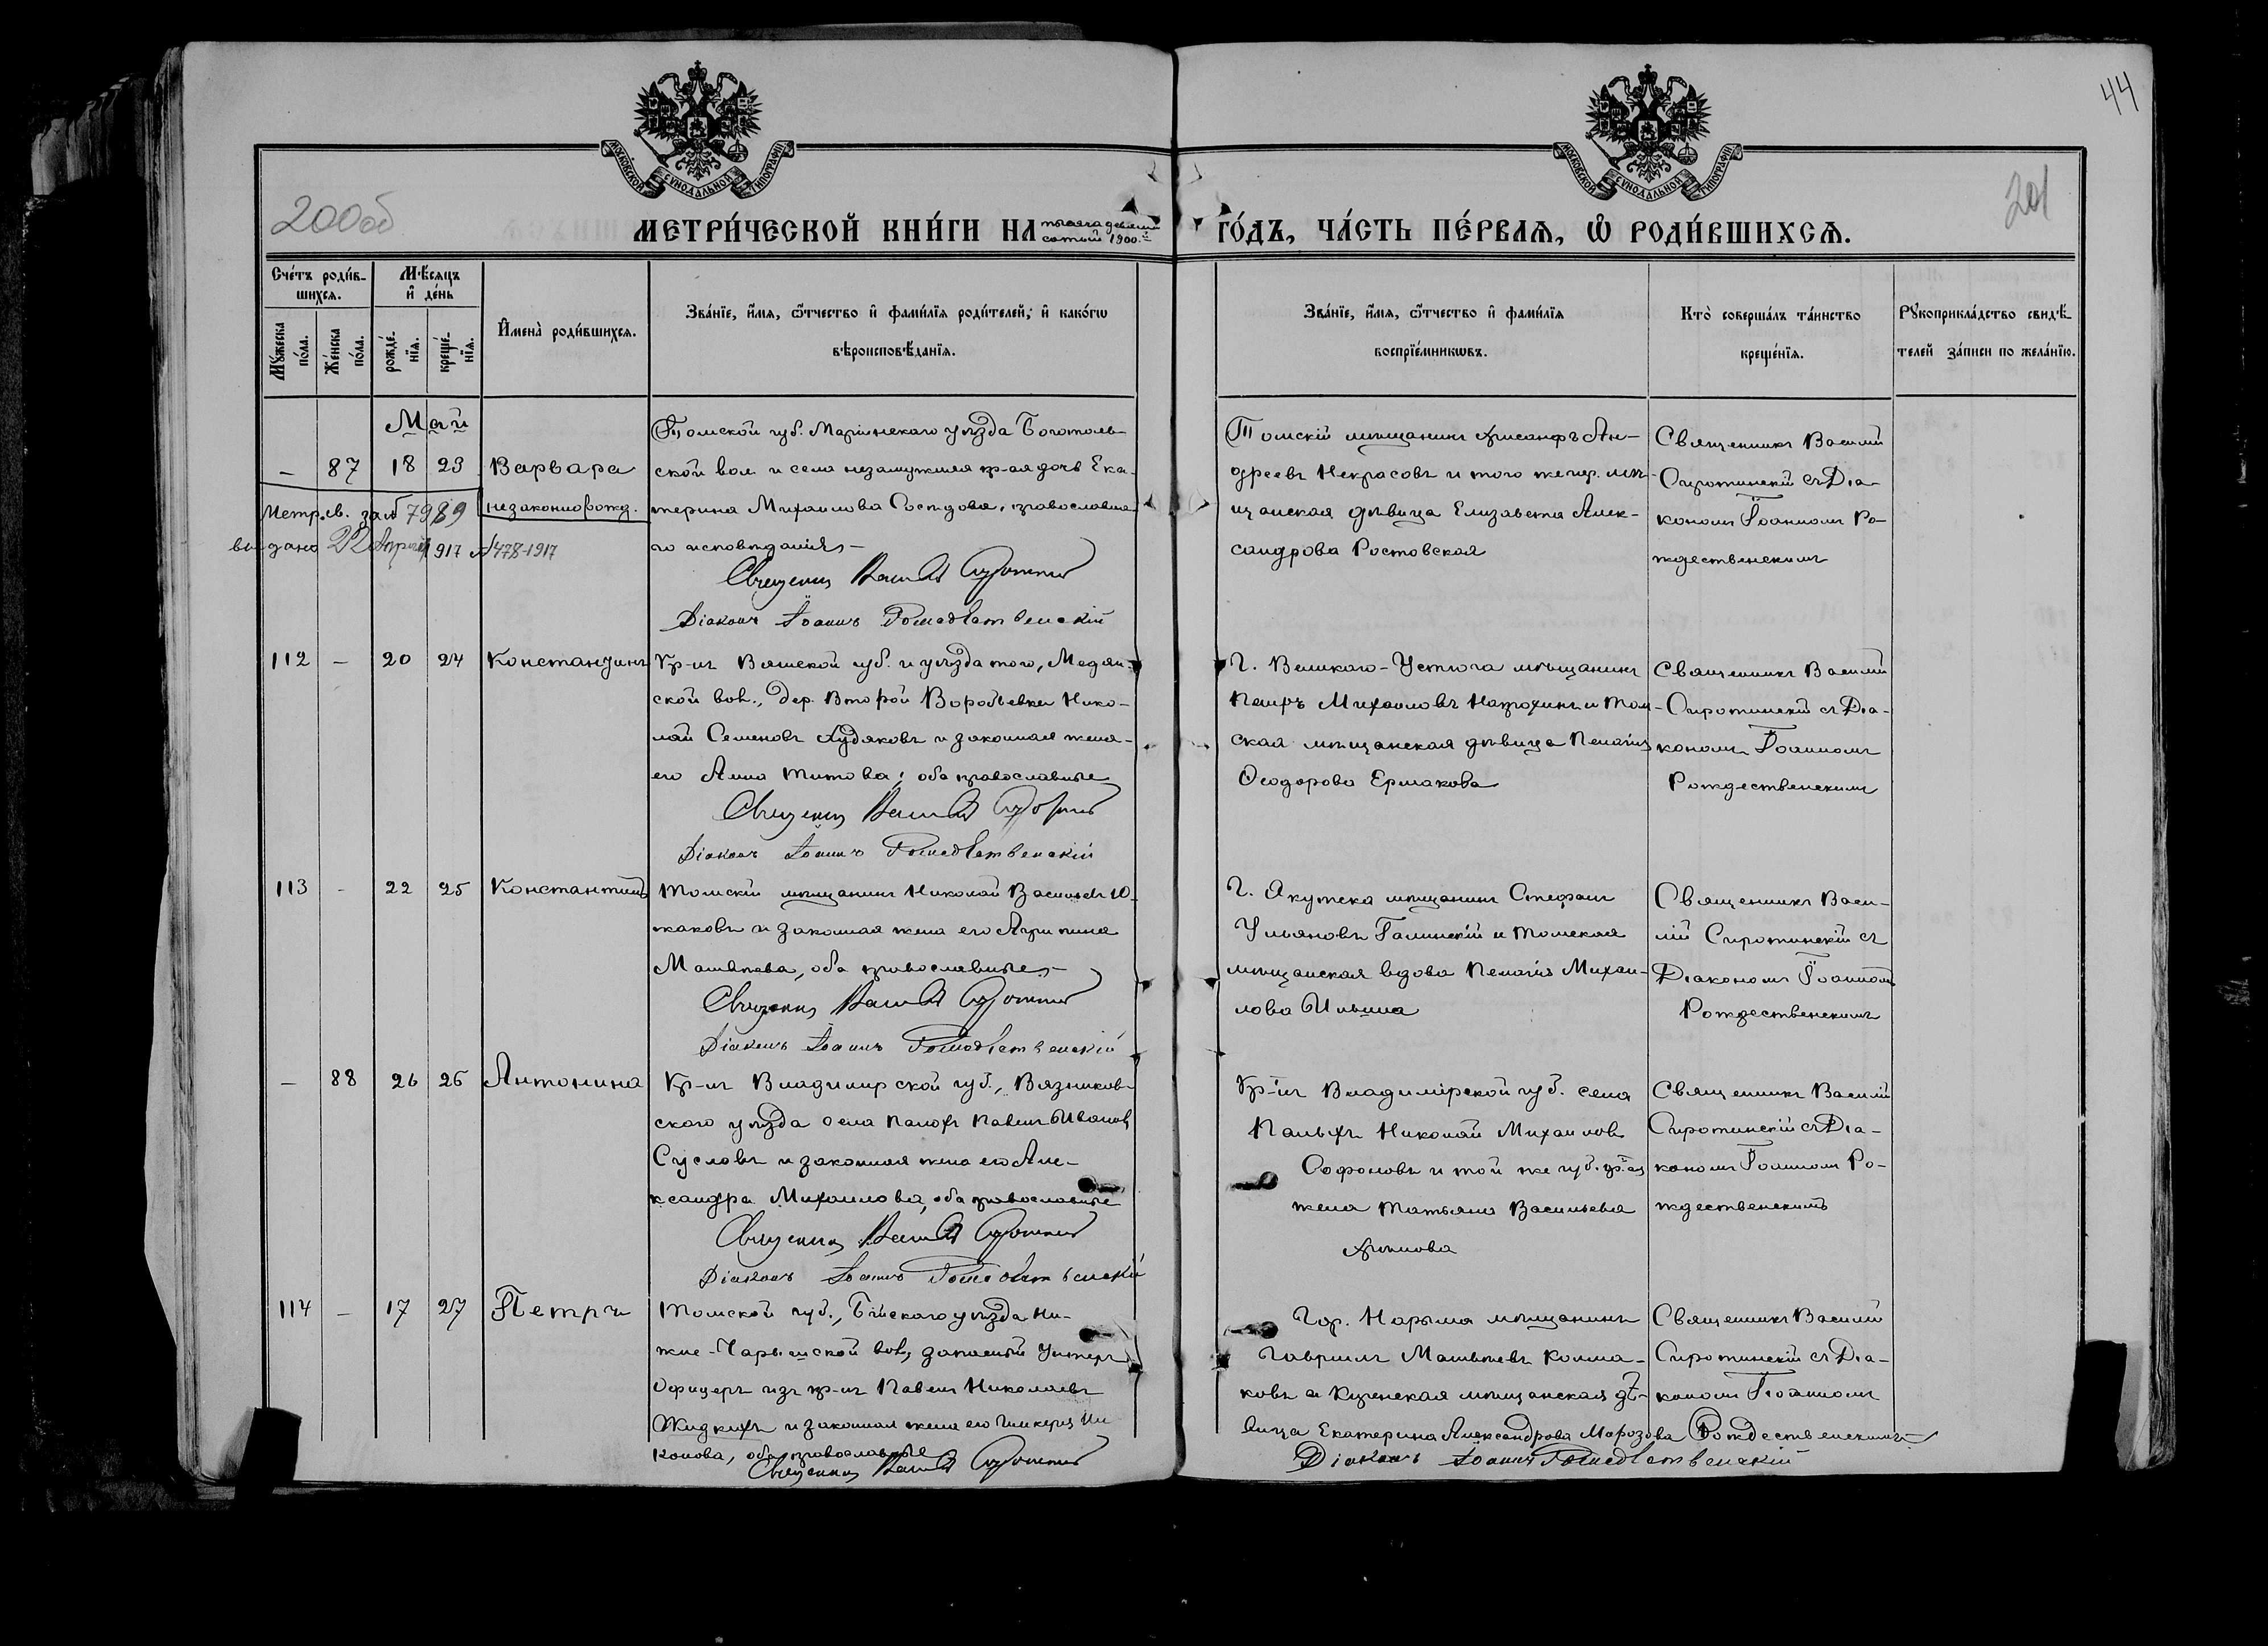 44
200об
201
МОСКОВСКОЙ СУНОДАЛЬНОЙ ТИПОГРАФІИ
МОСКОВСКОЙ СУНОДАЛЬНОЙ ТИПОГРАФІИ
МЕТРИ́ЧЕСКОЙ КНИ́ГИ НА тысяча девять
сотый 1900.й
ГО́ДЪ, ЧА́СТЬ ПЕ́РВАѦ, Ѽ РОДИ́ВШИХСѦ.
Сче́тъ роди́в-
шихсѧ.
Мꙋжеска по́ла.
Же́нска по́ла.
Мѣ́сѧцъ
и҆ де́нь
рожде́-
нїѧ.
креще́-
нїѧ.
И҆мена̀ роди́вшихсѧ.
Зва́нїе, и҆́мѧ, ѻ҆́тчество и҆ фами́лїѧ роди́телей, и҆ како́гѡ
вѣроисповѣ́данїѧ.
Зва́нїе, и҆́мѧ, ѻ҆́тчество и҆ фами́лїѧ
воспрїе́мникѡвъ.
Кто̀ соверша́лъ та́инство
креще́нїѧ.
Рꙋкоприкла́дство свидѣ́-
телей за́писи по жела́нїю.
Май
— 87 18 23 Варвара
незаконнорожд.
Метр.св. за № 7989
выдано 22 Апреля 1917 №478-1917
Томской губ. Маріинскаго уѣзда Боготоль-
ской вол. и села незамужняя кр-ая дочь Ека-
терина Михаилова, православна-
го исповѣданія,—
Священникъ Василій Сиротинскій
Діаконъ Іоаннъ Рождественскій
Томскій мѣщанинъ Хрисанфъ Ан-
дреевъ Некрасовъ и того же гор. мѣ-
щанская дѣвица Елизавета Алек-
сандрова Ростовская
Священникъ Василій
Сиротинскій съ Діа-
кономъ Іоанномъ Ро-
ждественскимъ
112 — 20 24 Константинъ
Кр-нъ Вятской губ. и уѣзда того, Медян-
ской вол., дер. Второй Воробьевки Нико-
лай Семеновъ Худяковъ и законная жена
его Анна Титова, оба православные
Священникъ Василій Сиротинскій
Діаконъ Іоаннъ Рождественскій
Г. Великаго-Устюга мѣщанинъ
Петръ Михаиловъ и Том-
ская мѣщанская дѣвица Пелагія
Ѳеодорова Ермакова
Священникъ Василій
Сиротинскій съ Діа-
кономъ Іоанномъ
Рождественскимъ
113 - 22 25 Константинъ
Томскій мѣщанинъ Николай Васильевъ Ю-
жаковъ и законная жена его Агрипина
Матвѣева, оба православные,—
Священникъ Василій Сиротинскій
Діаконъ Іоаннъ Рождественскій
Г. Якутска мѣщанинъ Стефанъ
Ульяновъ Галинскій и Томская
мѣщанская вдова Пелагія Михаи-
лова Ильина
Священникъ Васи-
лій Сиротинскій съ
Діакономъ Іоанномъ
Рождественскимъ
— 88 26 26 Антонина
Кр-нъ Владимирской губ., Вязников-
скаго уѣзда села Палѣхъ Павелъ Ивановъ
Сусловъ и законная жена его Але-
ксандра Михаилова, оба православные
Священникъ Василій Сиротинскій
Діаконъ Іоаннъ Рождественскій
Кр-нъ Владимірской губ. села
Палѣхъ Николай Михаиловъ
Софоновъ и той же губ. кр-ая
жена Татьяна Васильева
Священникъ Василій
Сиротинскій съ Діа-
кономъ Іоанномъ Ро-
ждественскимъ
114 — 17 27 Петръ
Томской губ., Бійскаго уѣзда Ни-
жне-Чарышской вол., запасный Унтеръ
Офицеръ изъ кр-нъ Павелъ Николаевъ
Жидкихъ и законная жена его Гликерія Ни-
конова, оба православные
Священникъ Василій Сиротинскій
Гор. Нарыма мѣщанинъ
Гавріилъ Матвѣевъ Колма-
ковъ и Кузнецкая мѣщанская дѣ-
вица Екатерина Александрова Морозова
Священникъ Василій
Сиротинскій съ Діа-
кономъ Іоанномъ
Рождественскимъ
Діаконъ Іоаннъ Рождественскій